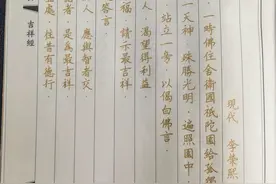 吉祥經
現代 李榮熙
一時佛住合衛國祇陀園給孤
一天神 殊勝光明 遍照園中
站立一旁 以偈白佛言
人 渴望得利益
福 請下最吉祥
答言
人 應與智者交
者 是為最吉祥
處 往昔有德行